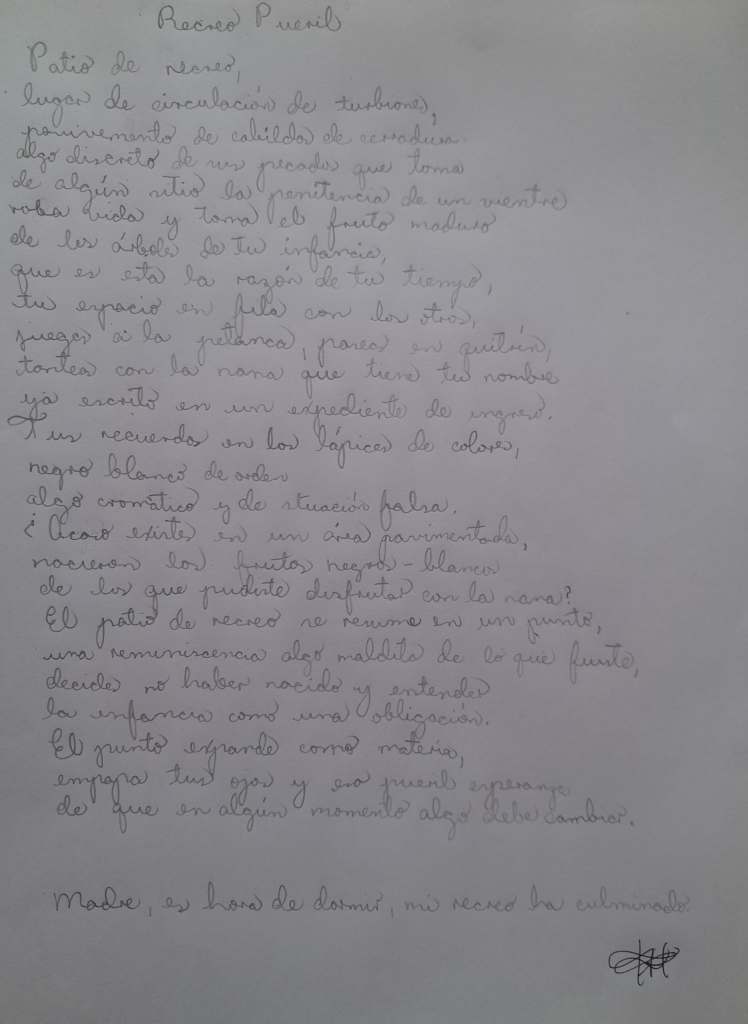 Recreo Pueril
Patio de recreo,
lugar de circulación de turbiones,
de cabildos de cerradura.
algo discreto de un pecador que toma
de algún sitio la penitencia de un vientre
roba vida y torna el fruto maduro
de los árboles de tu infancia,
que es esta la razón de tu tiempo,
tu espacio en fila con los otros,
juegas a la petanca, paseas en quitrín,
tonteas con la nana que tiene tu nombre
ya escrito en un expediente de ingreso.
Tus recuerdos en los lápices de colores,
negro blanco de orden
algo cromático y de situación falsa.
¿Acaso existes en un área pavimentada,
nacieron los frutos negros-blancos
de los que pudiste disfrutar con la nana?
El patio de recreo se resume en un punto,
una reminiscencia algo maldita de lo que fuiste,
decides no haber nacido y entendes
la infancia como una obligación.
El punto expande como materia,
empapa tus ojos y esa pueril esperanza
de que en algún momento algo debe cambiar.
Madre, es hora de dormir, mi recreo ha culminado.